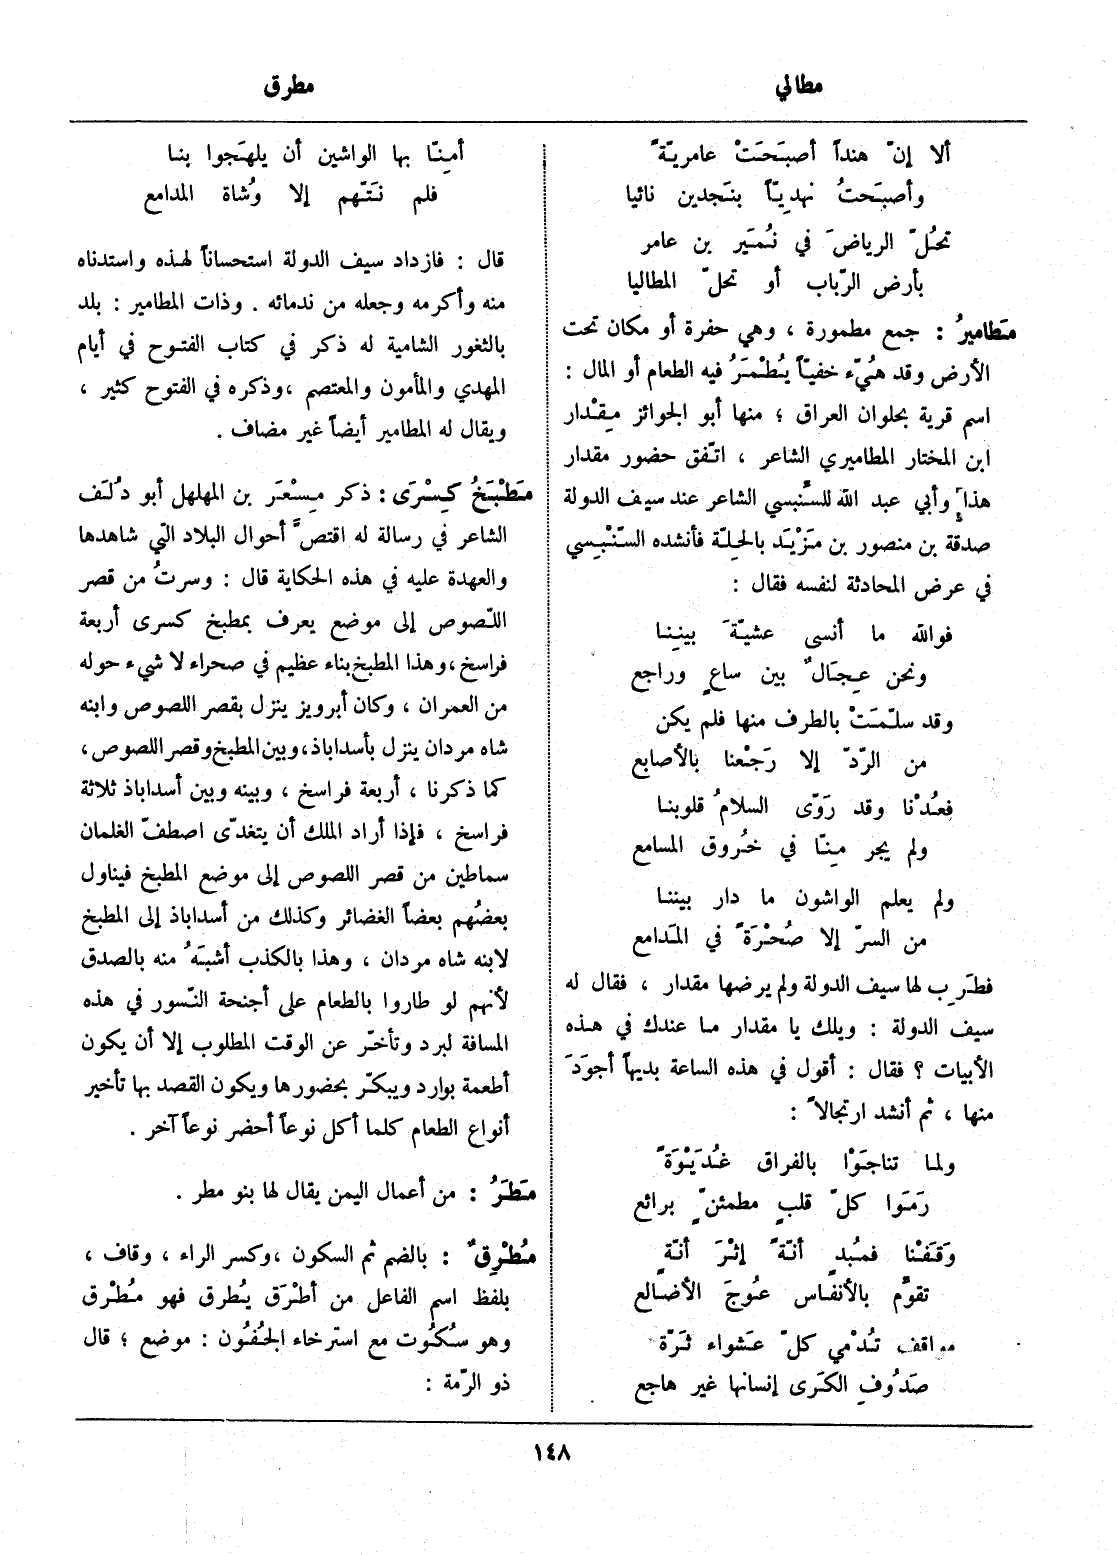 مطالي
مطرق
ألا إنّ هنداً أصبَحَتْ عامريّةً
وأصبَحتُ نهديّاً بنَجدين نائيا
تحُلّ الرياضَ في نُمَير بن عامر
بأرض الرّباب أو تحلّ المطاليا
مَطاميرُ : جمع مطمورة ، وهي حفرة أو مكان تحت
الأرض وقد هُيّء خفيّاً يُطْمَرُ فيه الطعام أو المال :
اسم قرية بحلوان العراق ؛ منها أبو الجوائز مِقْدار
ابن المختار المطاميري الشاعر ، اتّفق حضور مقدار
هذا وأبي عبد الله للسِّنْبسي الشاعر عند سيف الدولة
صدقة بن منصور بن مَزْيَد بالحِلّة فأنشده السّنْبِسي
في عرض المحادثة لنفسه فقال :
فوالله ما أنسى عشيّةَ بيننا
ونحن عِجَالٌ بين ساعٍ وراجع
وقد سلّمَتْ بالطرف منها فلم يكن
من الرّدّ إلا رَجْعنا بالأصابع
فعُدْنا وقد رَوّى السلامُ قلوبنا
ولم يجر مِنّا في خُروق المسامع
ولم يعلم الواشون ما دار بيننا
من السرّ إلا صُحْرَةً في المَدامع
فطَرِب لها سيف الدولة ولم يرضها مقدار ، فقال له
سيف الدولة : ويلك يا مقدار ما عندك في هذه
الأبيات ؟ فقال : أقول في هذه الساعة بديهاً أجوَدَ
منها ، ثم أنشد ارتجالاً :
ولما تناجَوْا بالفراق غُدَيْوَةً
رَمَوا كلّ قلبٍ مطمئنّ برائع
وَقَفْنا فمُبدٍ أنّةً إثْرَ أنّةٍ
تقوّمُ بالأنفاس عُوجَ الأضالع
مواقف تُدْمي كلّ عَشواء ثَرّة
صَدُوفِ الكَرى إنسانها غير هاجع
أمِنّا بها الواشين أن يلهَجوا بنا
فلم نَتّهم إلا وُشاة المدامع
قال : فازداد سيف الدولة استحساناً لهذه واستدناه
منه وأكرمه وجعله من ندمائه . وذات المطامير : بلد
بالثغور الشامية له ذكر في كتاب الفتوح في أيام
المهدي والمأمون والمعتصم ، وذكره في الفتوح كثير ،
ويقال له المطامير أيضاً غير مضاف .
مَطْبَخُ كِسْرَى : ذكر مِسْعَر بن المهلهل أبو دُلَف
الشاعر في رسالة له اقتصّ أحوال البلاد التي شاهدها
والعهدة عليه في هذه الحكاية قال : وسرتُ من قصر
اللّصوص إلى موضع يعرف بمطبخ كسرى أربعة
فراسخ ، وهذا المطبخ بناء عظيم في صحراء لا شيء حوله
من العمران ، وكان أبرويز ينزل بقصر اللصوص وابنه
شاه مردان ينزل بأسداباذ ، وبين المطبخ وقصر اللصوص ،
كما ذكرنا ، أربعة فراسخ ، وبينه وبين أسداباذ ثلاثة
فراسخ ، فإذا أراد الملك أن يتغدّى اصطفّ الغلمان
سماطين من قصر اللصوص إلى موضع المطبخ فيناول
بعضُهم بعضاً الغضائر وكذلك من أسداباذ إلى المطبخ
لابنه شاه مردان ، وهذا بالكذب أشبَهُ منه بالصدق
لأنهم لو طاروا بالطعام على أجنحة النّسور في هذه
المسافة لبرد وتأخّر عن الوقت المطلوب إلا أن يكون
أطعمة بوارد ويبكّر بحضورها ويكون القصد بها تأخير
أنواع الطعام كلما أكل نوعاً أحضر نوعاً آخر .
مَطَرُ : من أعمال اليمن يقال لها بنو مطر .
مُطْرِقٌ : بالضم ثم السكون ، وكسر الراء ، وقاف ،
بلفظ اسم الفاعل من أطْرَق يُطرق فهو مُطْرق
وهو سُكُوت مع استرخاء الجُفُون : موضع ؛ قال
ذو الرّمة :
١٤٨